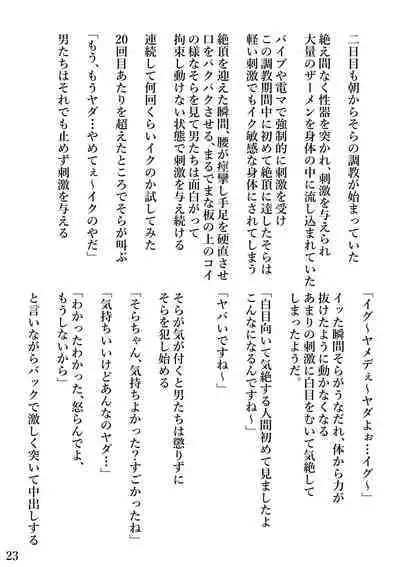 二日目も朝からそらの調教が始まっていた
絶え間なく性器を突かれ、刺激を与えられ
大量のザーメンを身体の中に流し込まれていた
バイブや電マで強制的に刺激を受け
この調教期間中に初めて絶頂に達したそらは
軽い刺激でもイク敏感な身体にされてしまう
絶頂を迎えた瞬間、腰が痙攣し手足を硬直させ
口をパクパクさせる、まるでまな板の上のコイ
の様なそらを見て男たちは面白がって
拘束し動けない状態で刺激を与え続ける
連続して何回くらいイクのか試してみた
20回目あたりを超えたところでそらが叫ぶ
「もう、もうヤダ…やめてぇ～イクのやだ」
男たちはそれでも止めず刺激を与える
「イグ～ヤメデぇ～ヤダよぉ…イグ～」
イッた瞬間そらがうなだれ、体から力が
抜けたように動かなくなる
あまりの刺激に白目をむいて気絶して
しまったようだ。
「白目向いて気絶する人間初めて見ましたよ
こんなになるんですね～」
「ヤバいですね～」
そらが気が付くと男たちは懲りずに
そらを犯し始める
「そらちゃん、気持ちよかった？すごかったね」
「気持ちいいけどあんなのヤダ…」
「わかったわかった、怒らんでよ、
もうしないから」
と言いながらバックで激しく突いて中出しする
23